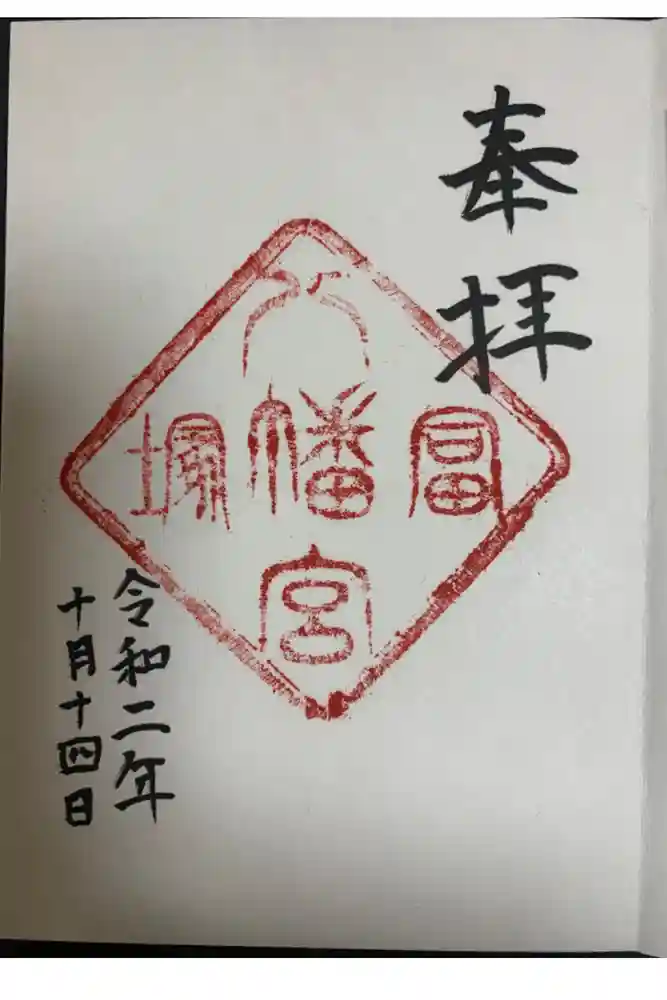 奉拝
冨
八幡宮
塚
令和二年
十月十四日